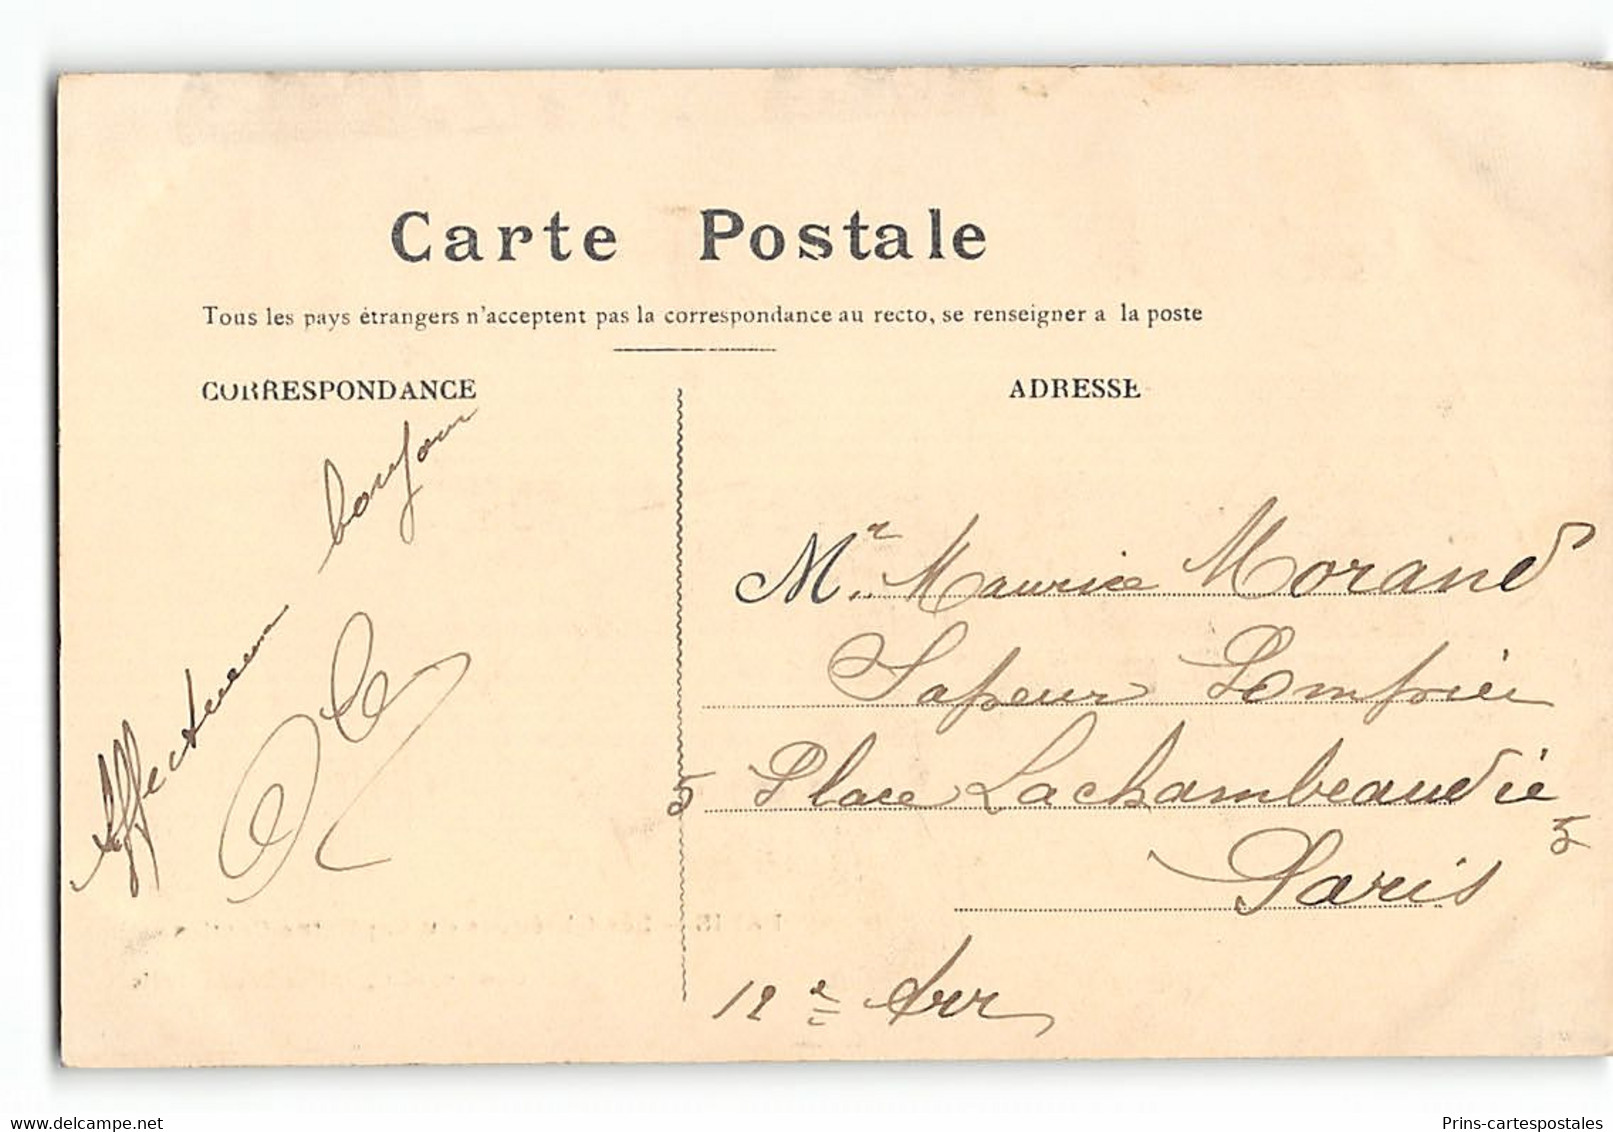 Carte Postale
Tous les pays étrangers n'acceptent pas la correspondance au recto, se renseigner a la poste
CORRESPONDANCE
ADRESSE
Affectueux
bonjour
Mr Maurice Morand
Sapeur Pompier
5 Place Lachambeaudie 5
Paris
12e Arr
Prins-cartespostales